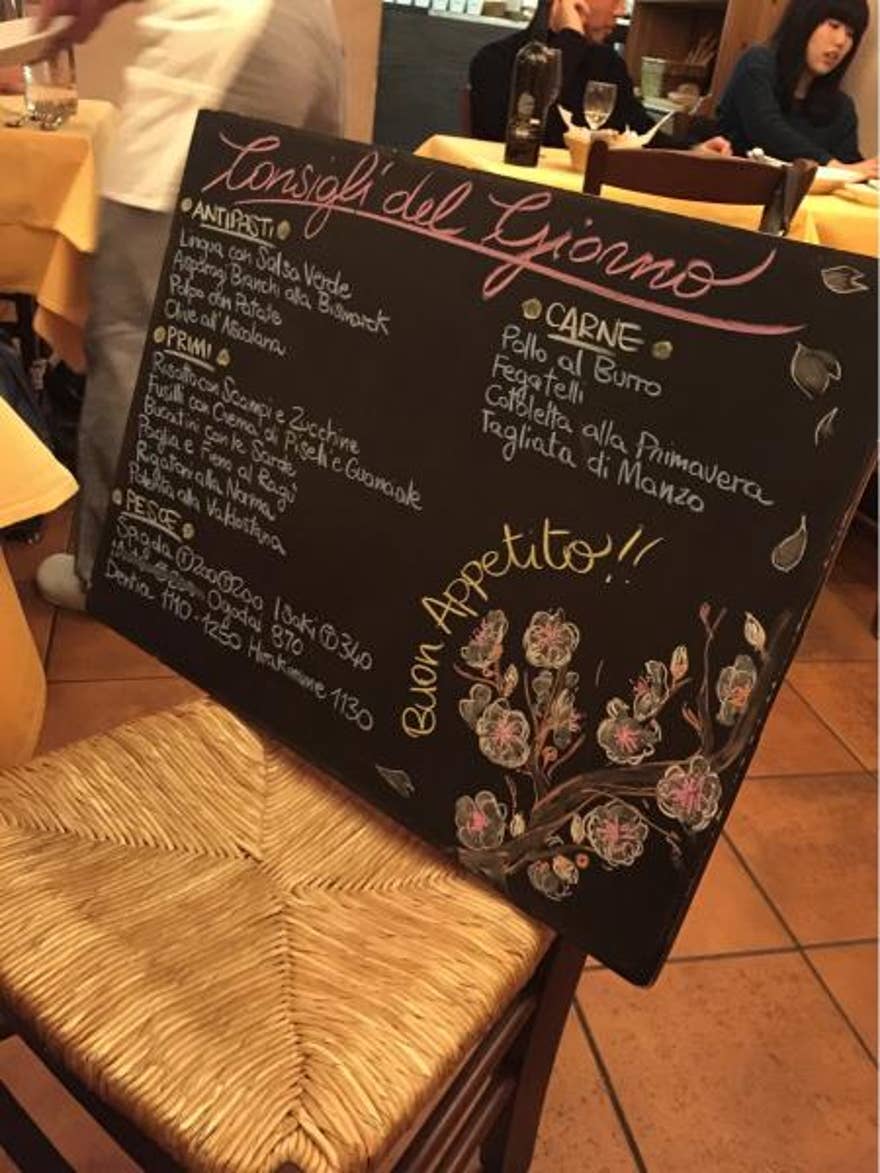 Consigli del Giorno
ANTIPASTI
Lingua con Salsa Verde
Asparagi Bianchi alla Bismarck
Polpo con Patate
Olive all'Ascolana
PRIMI
Risotto con Scampi e Zucchine
Fusilli con Crema di Piselli e Guanciale
Bucatini con le Sarde
Paglia e Fieno al Ragù
Rigatoni alla Norma
Polenta alla Valdostana
PESCE
Spigola ①200 ①200 Isaki ① 340
Ogodai 870
Dentia 1110-1250 Hirakimame 1130
CARNE
Pollo al Burro
Fegatelli
Cotoletta alla Primavera
Tagliata di Manzo
Buon Appetito!!